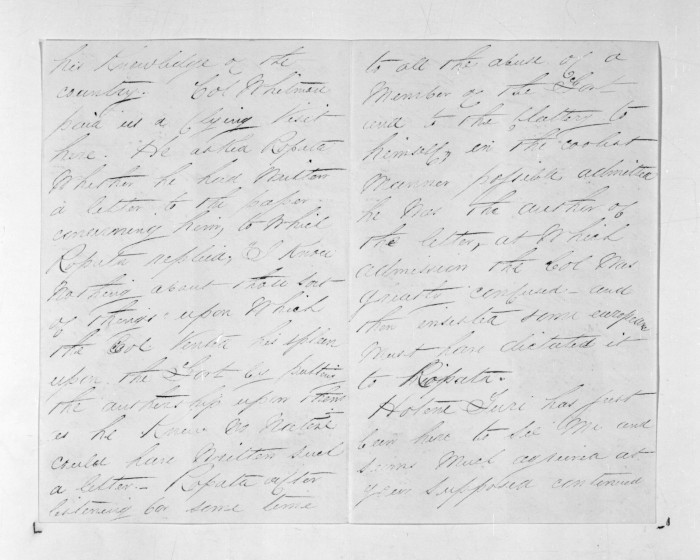 his knowledge of the
country. Col Whitmore
paid us a flying visit
here. He asked Ropata
whether he had written
a letter to the paper
concerning him, to which
Ropata replied, "I know
nothing about those sort
of things - upon which
the Col vented his spleen
upon the Govt by putting
the authorship upon them
as he knew no native
could have written such
a letter - Ropata after
listening for some time
to all the abuse of a
Member of the Govt
and to the flattery to
himself, in the coolest
manner possible admitted
he was the author of
the letter, at which
admission the Col was
greatly confused - and
then insisted some european
must have dictated it
to Ropata.
Hotene Turi has just
been here to see me and
seems much aggrieved at
your supposed continued